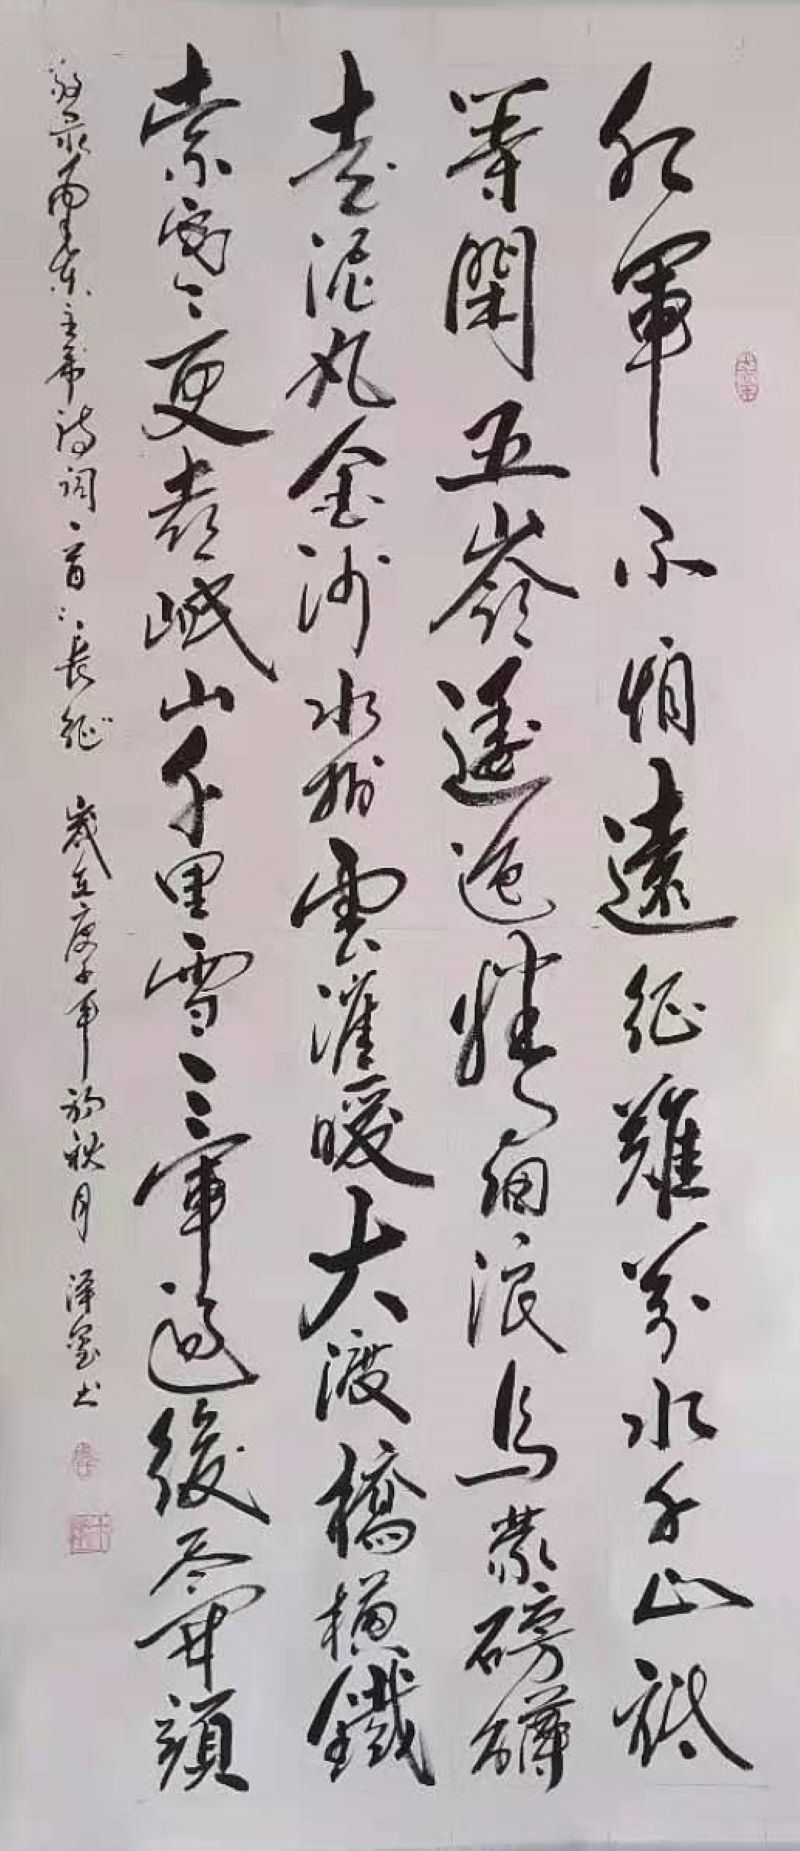 紅軍不怕遠征難萬水千山祇
等閑五嶺逶迤騰細浪烏蒙磅礴
走泥丸金沙水拍雲崖暖大渡橋橫鐵
索寒〻更喜岷山千里雪三軍過後盡開顏
敬录毛泽东主席诗词一首長征 歲在庚子年初秋月 泽书